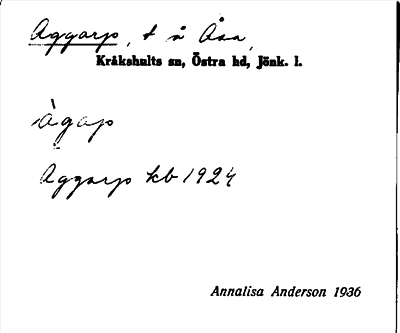 Aggarp, t å Åsa,
Kråkshults sn, Östra hd, Jönk. l.
àgap
Aggarp kb 1924
Annalisa Anderson 1936